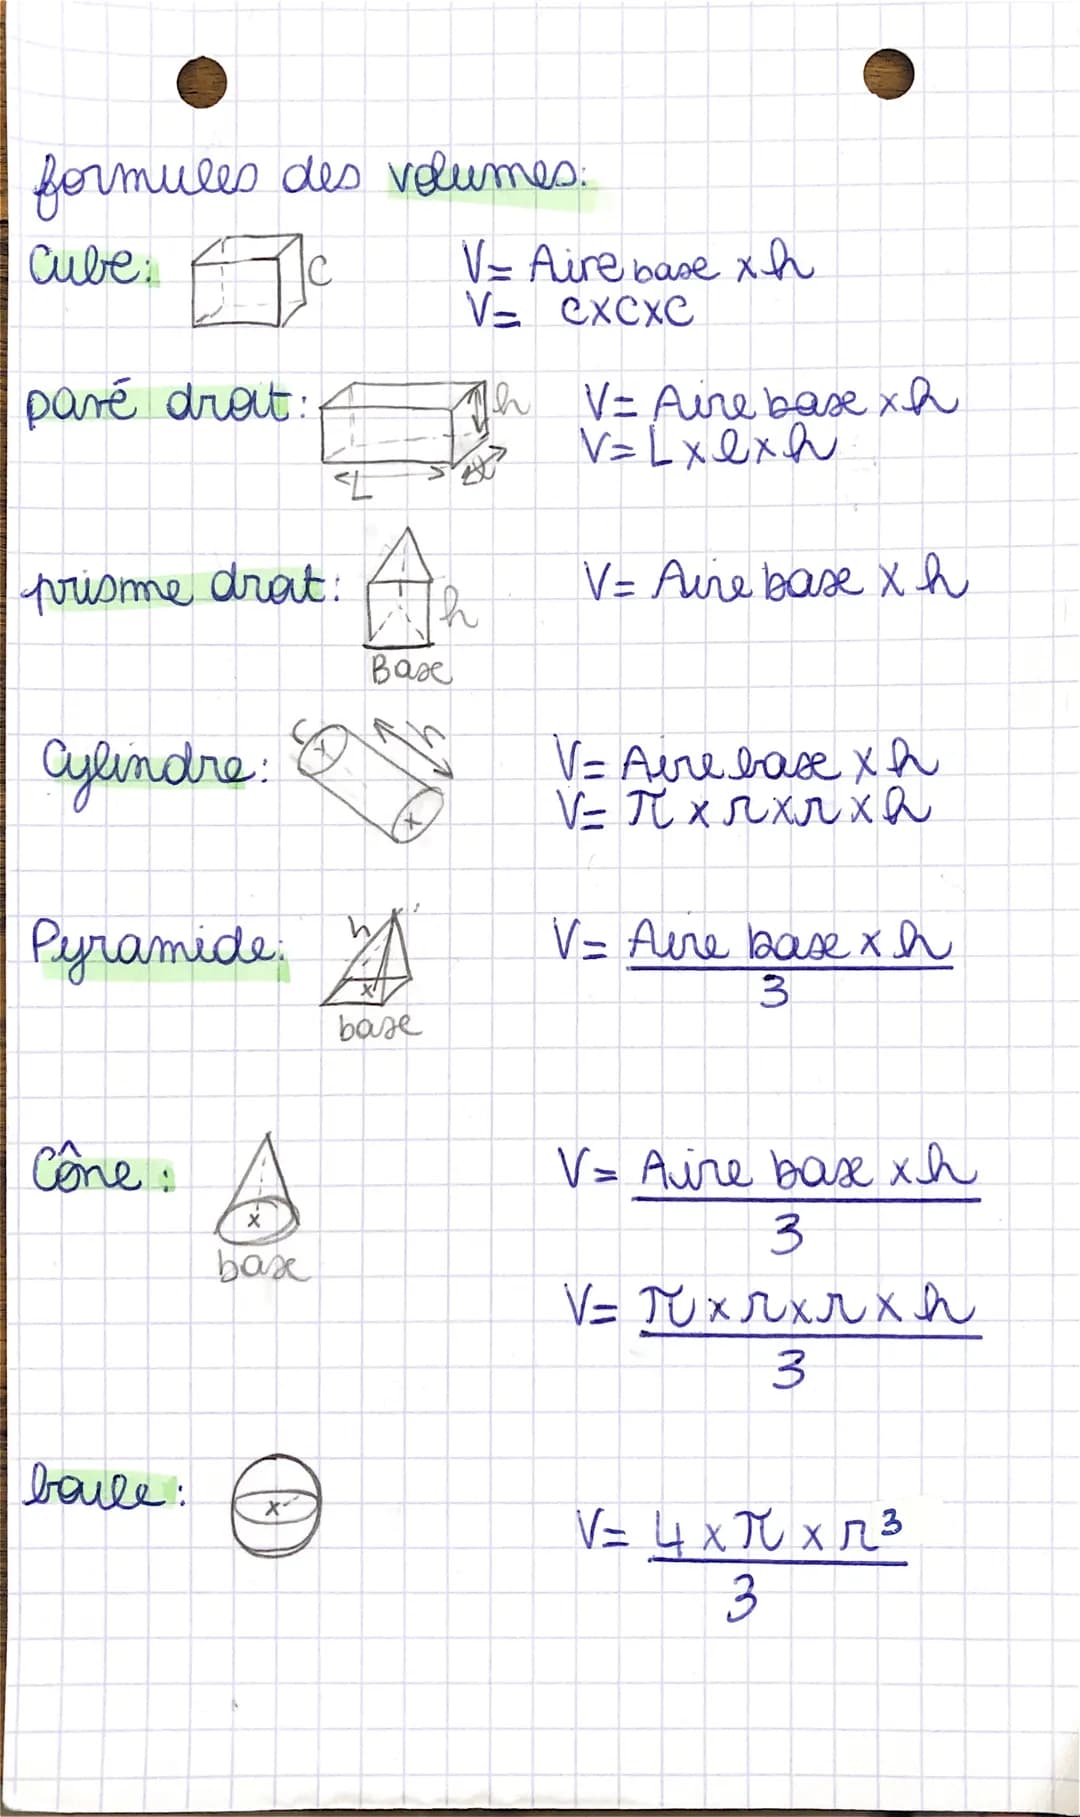 formules des volumes:
Cube: C V= Aire base x h
V= cxcxc
pavé droit: h V= Aire base x h
L V= L x l x h
prisme droit: h V= Aire base x h
Base
Cylindre: r h V= Aire base x h
V= π x r x r x h
Pyramide: h V= Aire base x h
3
base
Cône: V= Aire base x h
3
base
V= π x r x r x h
3
boule: V= 4 x π x r³
3